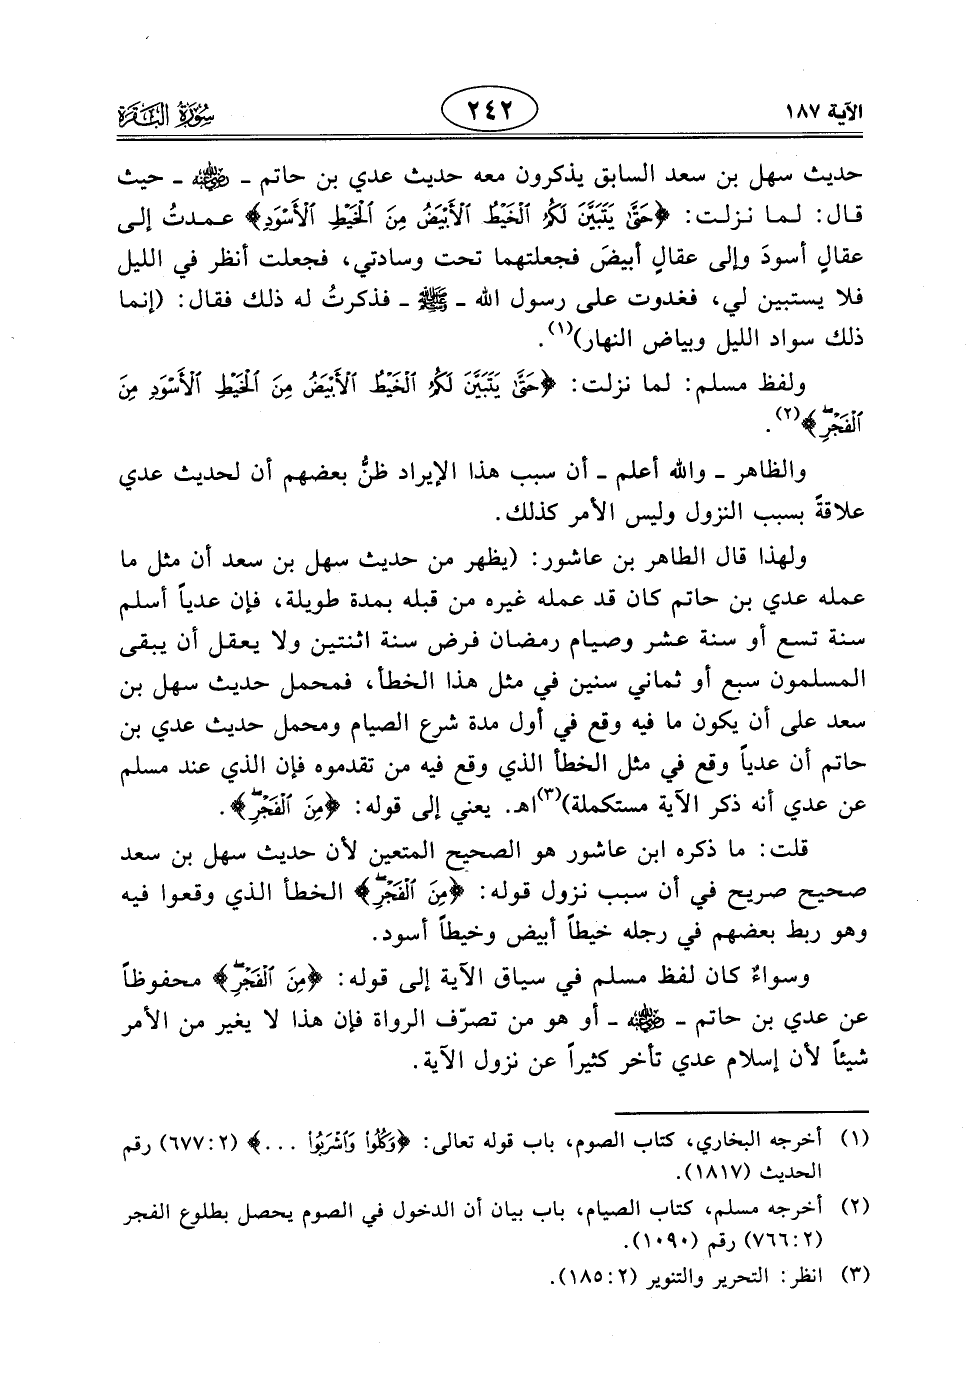 الآية ١٨٧
٢٤٢
سُورَةُ البَقَرَة
حديث سهل بن سعد السابق يذكرون معه حديث عدي بن حاتم ـ رضي الله عنه ـ حيث
قال: لما نزلت: ﴿حَتَّىٰ يَتَبَيَّنَ لَكُمُ الْخَيْطُ الْأَبْيَضُ مِنَ الْخَيْطِ الْأَسْوَدِ﴾ عمدتُ إلى
عقالٍ أسودَ وإلى عقالٍ أبيضَ فجعلتهما تحت وسادتي، فجعلت أنظر في الليل
فلا يستبين لي، فغدوت على رسول الله ـ ﷺ ـ فذكرتُ له ذلك فقال: (إنما
ذلك سواد الليل وبياض النهار)(١).
ولفظ مسلم: لما نزلت: ﴿حَتَّىٰ يَتَبَيَّنَ لَكُمُ الْخَيْطُ الْأَبْيَضُ مِنَ الْخَيْطِ الْأَسْوَدِ مِنَ
الْفَجْرِ ۖ﴾(٢).
والظاهر ـ والله أعلم ـ أن سبب هذا الإيراد ظنُّ بعضهم أن لحديث عدي
علاقةً بسبب النزول وليس الأمر كذلك.
ولهذا قال الطاهر بن عاشور: (يظهر من حديث سهل بن سعد أن مثل ما
عمله عدي بن حاتم كان قد عمله غيره من قبله بمدة طويلة، فإن عدياً أسلم
سنة تسع أو سنة عشر وصيام رمضان فرض سنة اثنتين ولا يعقل أن يبقى
المسلمون سبع أو ثماني سنين في مثل هذا الخطأ، فمحمل حديث سهل بن
سعد على أن يكون ما فيه وقع في أول مدة شرع الصيام ومحمل حديث عدي بن
حاتم أن عدياً وقع في مثل الخطأ الذي وقع فيه من تقدموه فإن الذي عند مسلم
عن عدي أنه ذكر الآية مستكملة)(٣)اهـ. يعني إلى قوله: ﴿مِنَ الْفَجْرِ ۖ﴾.
قلت: ما ذكره ابن عاشور هو الصحيح المتعين لأن حديث سهل بن سعد
صحيح صريح في أن سبب نزول قوله: ﴿مِنَ الْفَجْرِ ۖ﴾ الخطأ الذي وقعوا فيه
وهو ربط بعضهم في رجله خيطاً أبيض وخيطاً أسود.
وسواءٌ كان لفظ مسلم في سياق الآية إلى قوله: ﴿مِنَ الْفَجْرِ ۖ﴾ محفوظاً
عن عدي بن حاتم ـ رضي الله عنه ـ أو هو من تصرّف الرواة فإن هذا لا يغير من الأمر
شيئاً لأن إسلام عدي تأخر كثيراً عن نزول الآية.
(١) أخرجه البخاري، كتاب الصوم، باب قوله تعالى: ﴿وَكُلُوا وَاشْرَبُوا ...﴾ (٢:٦٧٧) رقم
الحديث (١٨١٧).
(٢) أخرجه مسلم، كتاب الصيام، باب بيان أن الدخول في الصوم يحصل بطلوع الفجر
(٢:٧٦٦) رقم (١٠٩٠).
(٣) انظر: التحرير والتنوير (٢:١٨٥).